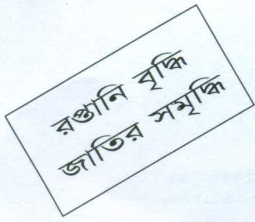 রপ্তানি বৃদ্ধি
জাতির সমৃদ্ধি